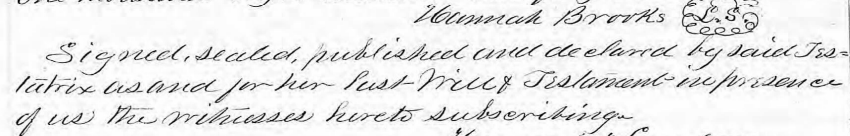 Hannah Brooks L.S.
Signed, sealed, published and declared by said Tes=
tatrix as and for her Last Will & Testament in presence
of us the witnesses hereto subscribing